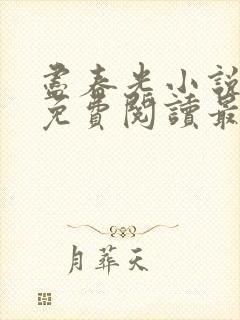 盡春光小說
免費閱讀最
月葬天